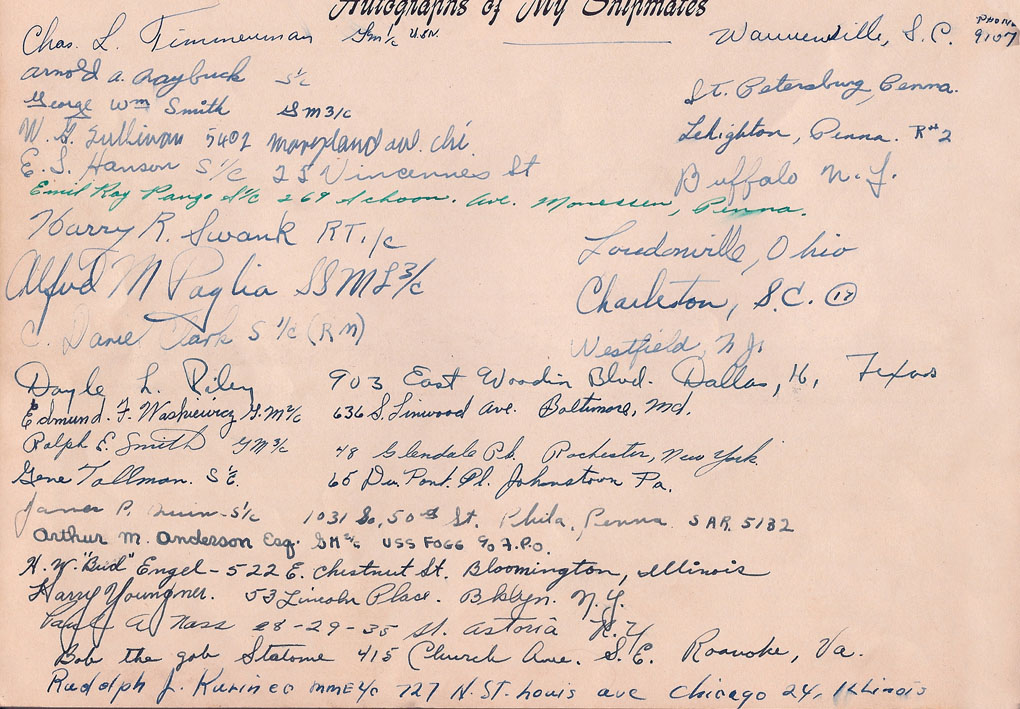 Autographs of My Shipmates
Chas. L. Timmerman GM 1/c U.S.N. Warrenville, S.C. PHONE 9107
Arnold A. Raybuck S 1/c St. Petersburg, Penna.
George Wm Smith GM 3/c Lehighton, Penna. R#2
W. G. Sullivan 5402 Maryland av. chi
E. S. Hanson S 1/c 25 Vincennes St Buffalo N.Y.
Emil Ray Pango S 1/c 269 Schoon. Ave. Monessen, Penna.
Harry R. Swank RT 1/c Loudonville, Ohio
Alfred M Paglia SSML 3/c Charleston, S.C. (19)
C. Dane Clark S 1/c (RM) Westfield, N.J.
Doyle L. Riley 903 East Woodin Blvd. Dallas, 16, Texas
Edmund. F. Waskiewicz G.M 2/c 636 S. Linwood Ave. Baltimore, Md.
Ralph E. Smith GM 3/c 48 Glendale Pk. Rochester, New York.
Gene Tallman. S 1/c. 65 Du Pont. Pl. Johnstown Pa.
James P. Quinn - S 1/c 1031 So. 50th St. Phila. Penna. SAR. 5132
Arthur M. Anderson Esq. GM 2/c USS FOGG % F.P.O.
H. W. "Bud" Engel - 522 E. Chestnut St. Bloomington, Illinois
Harry Youngner. 53 Lincoln Place. Bklyn. N.Y.
Paul A. Nass 28-29-35 St. Astoria N.Y
Bob the gob Statome 415 Church Ave. S.E. Roanoke, Va.
Rudolph J. Kurinec MME 2/c 727 N. ST. Louis ave Chicago 24, Illinois